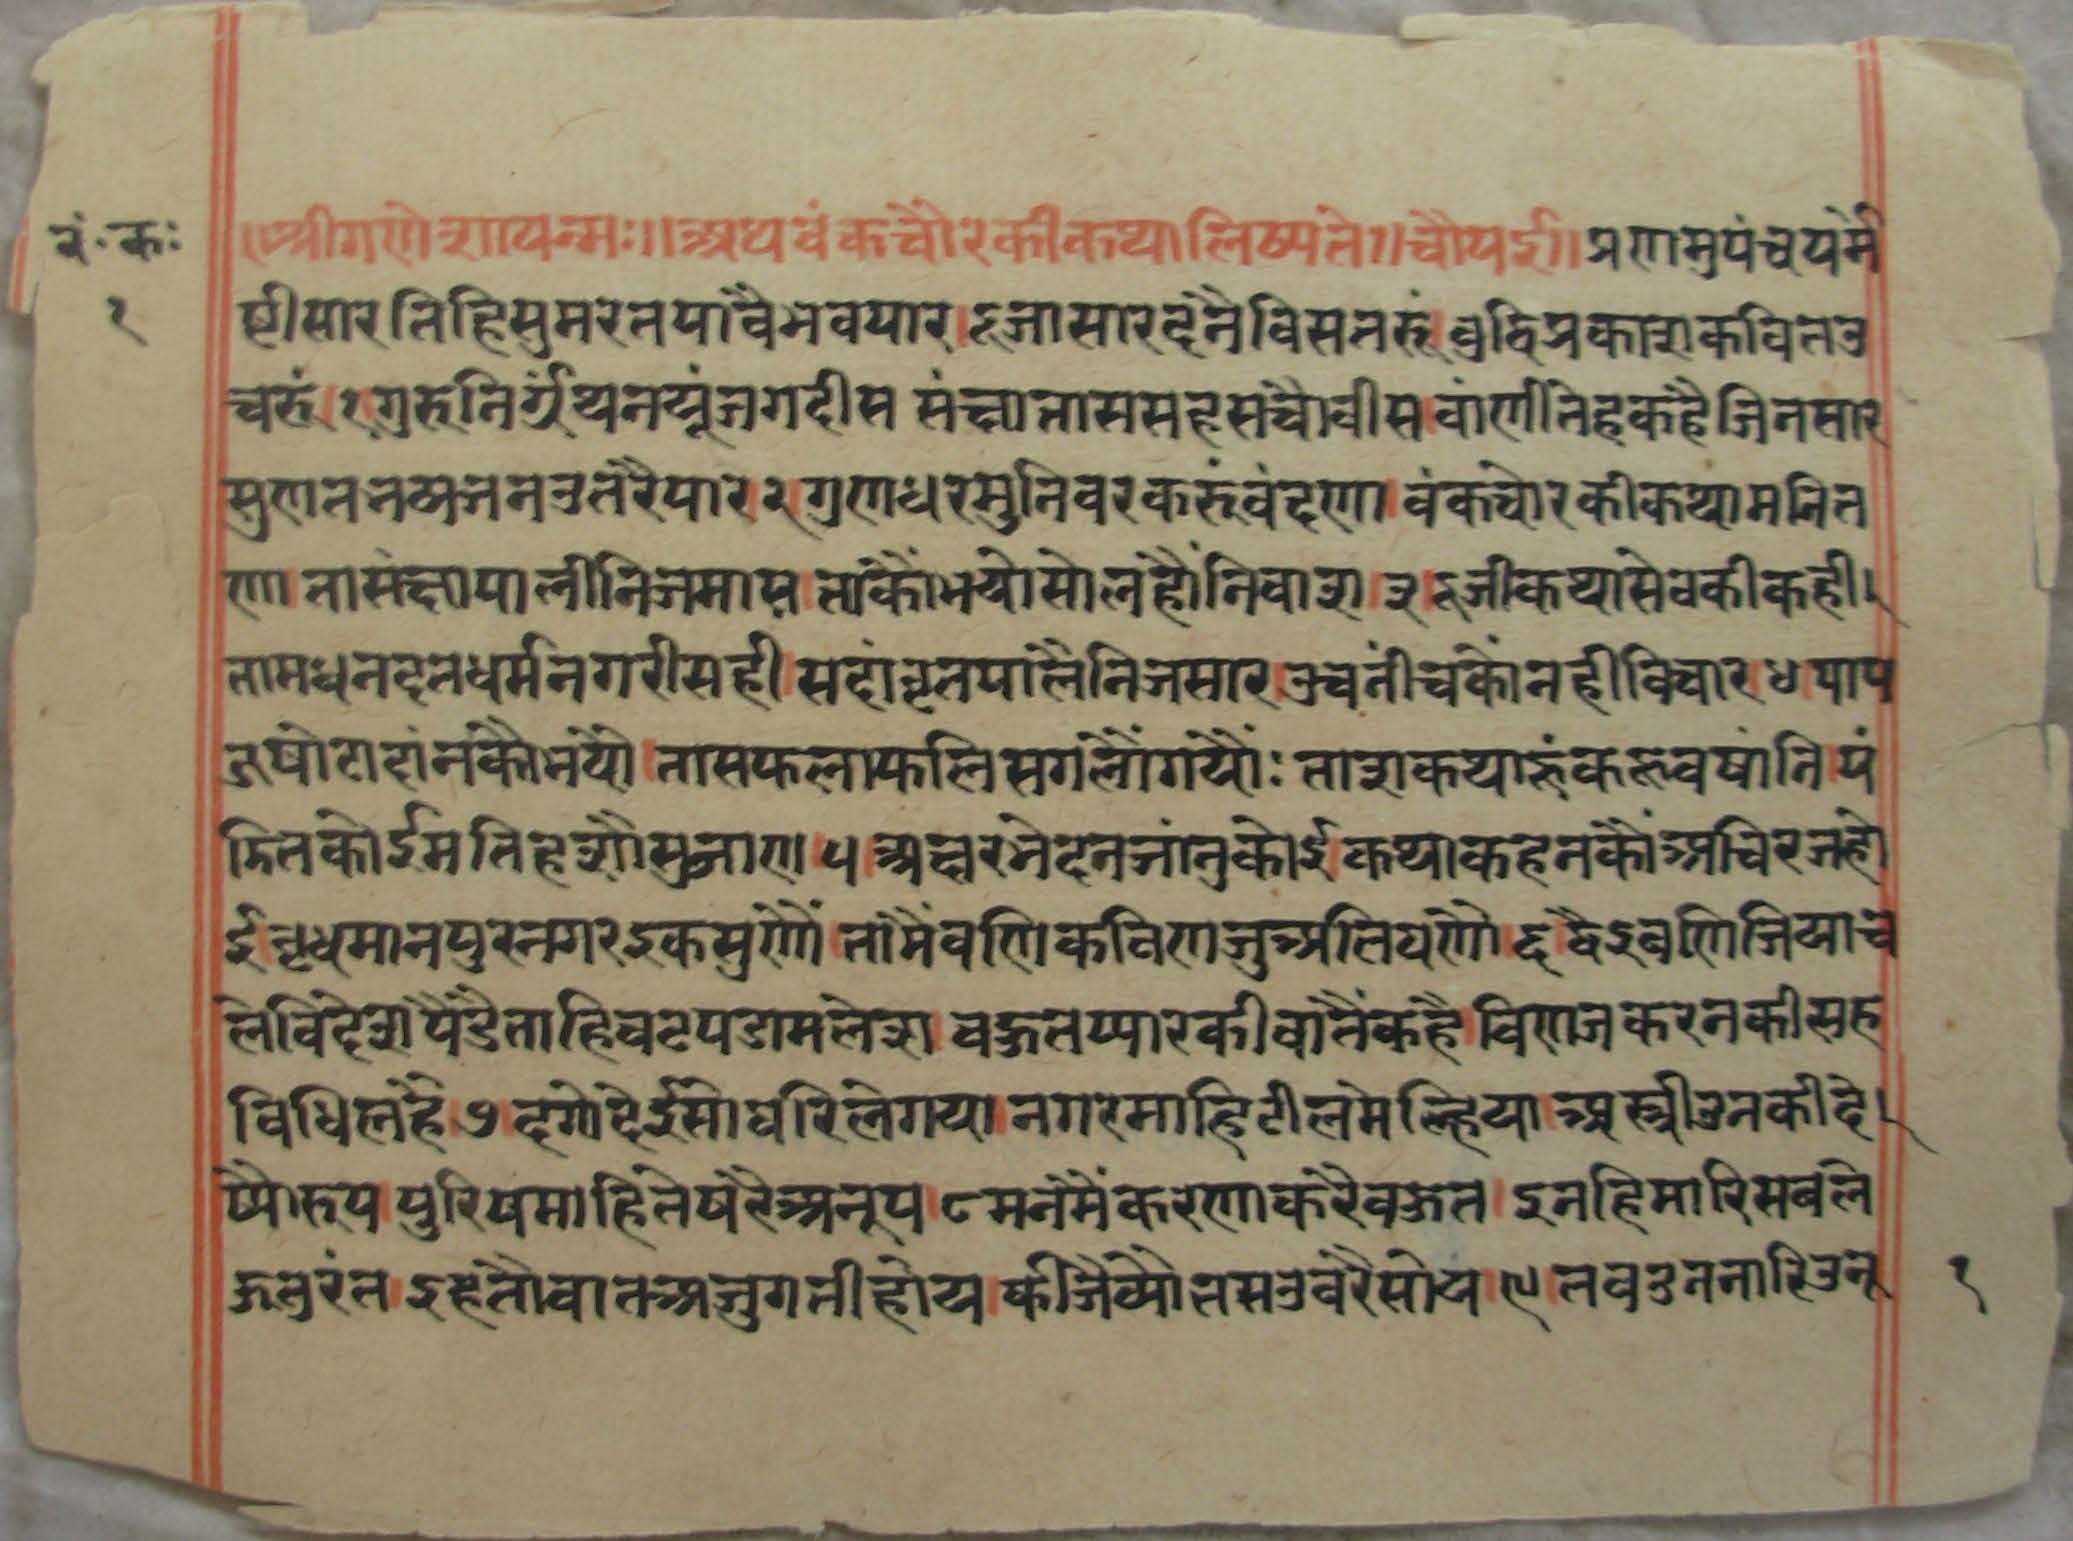 वं॰ क॰
१
॥श्रीगणेशायन्मः॥ अथ वंकचौरकी कथा लिष्यते॥ चौपई॥ प्रणमुपंचपर्मे
ष्टीसार तिहिसुमरतपांवैभवपार। दूजासारदनैविसतरूं बुधिप्रकाशकवितउ
चरुं १ गुरुनिर्ग्रंथनमूंजगदीस संज्ञातासहसचौवीस वांणीतिहकहैजिनसार
सुणतनव्यजनउतरैपार २ गुणधरमुनिवरकरूंवंदणा वंकचोरकीकथामनित
णा तासंज्ञापालीनिजमास तांकौभयोसोलहौंनिवाश ३ दूजीकथासेवकीकही।
तामधनदतधर्मनगरीसही सदांवृतपालैनिजसार उचनींचकौंनहीविचार ४ पाप
जषोटादांनकौभयौ तासफलाफलिसगलौंगयौः ताशकथाहुंकरूवषांनि पं
डितकोईमतिहशौसुजाण ५ अक्षरभेदनजांनुकोई कथाकहनकौंअचिरजहो
ई वृधमानपुरनगरइकसुणौं तांमैंवणिकविणजुअतिघणौ ६ वैइवणिजियाच
लेविदेश पैंडैताहिवटपडामलेश वहुतप्यारकीवातैंकहै विणजकरनकीसहु
विधिलहै ७ दगोदेईसोघरिलेगया नगरमाहिटीलमेल्हिया अस्त्रीउनकीदे।
ष्पौरूप पुरिषमाहितेषरैअनूप ८ मनमैंकरणाकरैवहुत इनहिमारिसबले
हुतुरंत इहतौवातअजुगतीहोय कीजैव्यौतसउवरैसोय ९ तवउननारिउनू
१